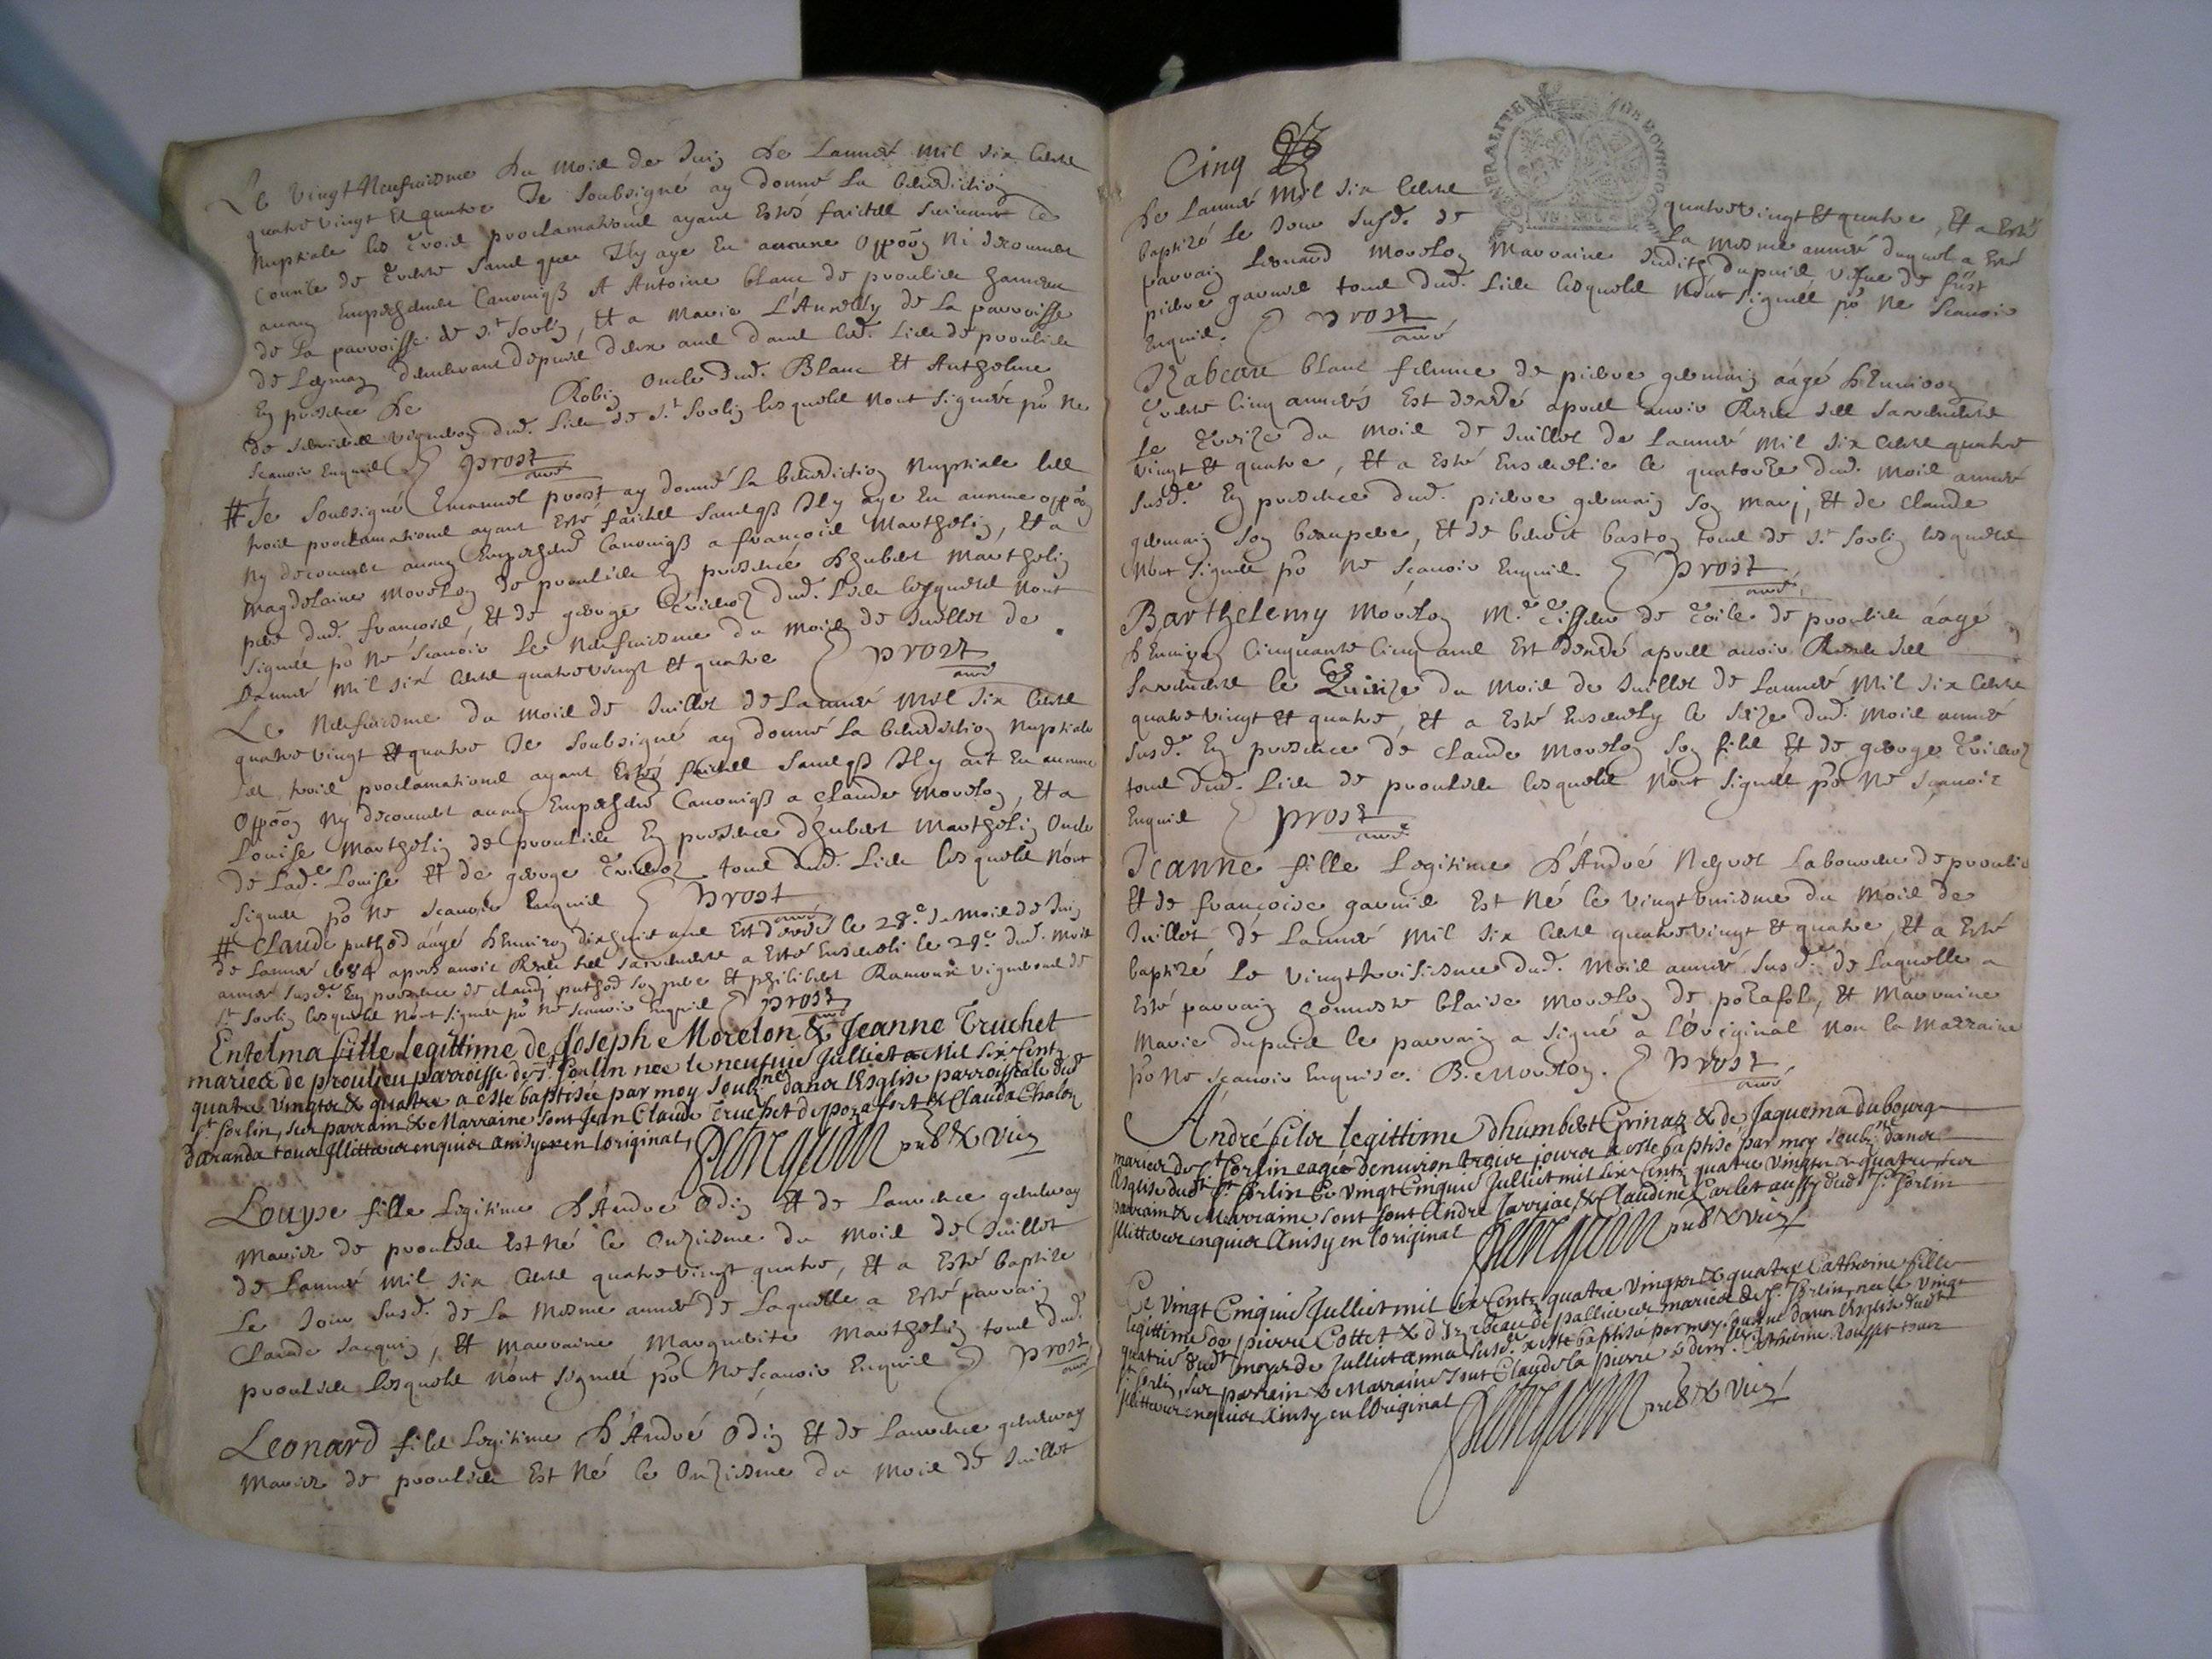 Le vingt Neufuiesme du mois de Juin de Lannée mil six cents
quatre vingt et quatre Je soubsigné ay donné La benediction
nuptiale les trois proclamations ayant Estés faictes suivant le
Concile de trente sans que Il y aye Eu aucune oppoon Ni decouuert
aucun Empeschement Canoniq A Antoine blanc de proulieu
de La parroisse de st Sorlin, Et a Marie de La parroisse
de demeurant depuis deux ans dans led. Lieu de proulieu
En presence de Robin oncle dud. Blanc Et Anthelme
de vigneron dud. Lieu de st Sorlin lesquels nont signés po ne
scauoir Enquis Prost curé
# Je soubsigné Emanuel prost ay donné La benediction Nuptiale les
trois proclamations ayant Esté faictes sans q Il y aye Eu aucune oppoon
Ny decouuert aucun Empeschent Canoniq a françois Marthelin, Et a
Magdelaine Morelon de proulieu En presence dhubert Marthelin
pere dud. françois, Et de george dud. Lieu lesquels nont
signés po ne scauoir Le Neufuiesme du mois de Juillet de
Lannée mil six cents quatre vingt et quatre Prost curé
Le Neufuiesme du mois de Juillet de Lannée mil six cents
quatre vingt Et quatre Je soubsigné ay donné La benediction Nuptiale
les trois proclamations ayant Estés faictes sans q Il y ait Eu aucune
oppoon Ny decouuert aucun Empeschent Canoniq a Claude Morelon, Et a
Louise Marthelin de proulieu En presence d'hubert Marthelin Oncle
de Lad.e Louise Et de george tous dud. Lieu lesquels nont
signés po ne scauoir Enquis Prost curé
# Claude puthod áagé dEnuiron dixhuict ans Est decedé le 28.e du mois de Juin
de Lannée 1684 apres auoir Receu les sacrements a Esté Enseueli le 29.e dud. mois
année susd.e En presence de Claude puthod son pere Et philibert vignerons de
st Sorlin lesquels nont signés po ne scauoir Enquis Prost curé
Entelma fille legittime de Joseph Morelon & Jeanne Truchet
mariés de proulieu parroisse de st Sorlin née le neufuie Julliet Mil six cents
quatre vingts & quatre a esté baptisée par moy soubné dans lesglise parroissiale dud
st Sorlin, ses parrain & Marraine sont Jean Claude Truchet de pozafort & Clauda Chalon
daranda tous illitterés enquis ainsy en loriginal, pnt & vicy
Louyse fille Legitime d'André Odin Et de Laurence
Mariés de proulieu Est Né le Onziesme du mois de Juillet
de Lannée mil six cents quatre vingt quatre, Et a Esté baptisé
Le Jour susd. de La mesme année de Laquelle a Esté parrain
Claude Jacquin, Et marraine Marguerite Marthelin tous dud.
proulieu Lesquels nont signés po Ne scauoir Enquis Prost curé
Leonard fils Legitime d'André Odin Et de Laurence
Mariés de proulieu Est Né le Onziesme du mois de Juillet
Cinq
de Lannée Mil six cents quatre vingt Et quatre, Et a Esté
baptizé Le Jour susd. de La mesme année duquel a Esté
parrain Leonard Morelon Marraine Judith dupuis vefue de
pierre garnier tous dud. Lieu lesquels nont signés po Ne scauoir
Enquis. Prost curé
Izabeau blanc femme de pierre germain áagé dEnuiron
trente Cinq années Est decedé apres auoir Receu ses sacrements
Le treize du mois de Juillet de Lannée mil six cents quatre
vingt Et quatre, Et a Esté Enseuelie le quatorze dud. mois année
susd.e En presence dud. pierre germain son mary, Et de Claude
germain son beaupere, Et de benoit baston tous de st Sorlin lesquels
nont signés po Ne scauoir Enquis. Prost curé
Barthelemy Morelon M.e tissier de toile de proulieu áagé
dEnuiron Cinquante Cinq ans Est decedé apres auoir Receu ses
sacrements le Quinze du mois de Juillet de Lannée mil six cents
quatre vingt Et quatre, Et a Esté Enseuely le seize dud. mois année
susd.e En presence de Claude Morelon son fils Et de george
tous dud. Lieu de proulieu lesquels nont signés po Ne scauoir
Enquis Prost curé
Jeanne fille Legitime d'André Laboureur de proulieu
Et de françoise garnier Est Né le vingt uniesme du mois de
Juillet de Lannée mil six cents quatre vingt Et quatre, Et a Esté
baptizé Le vingt troisiesme dud. mois année susd.e de Laquelle a
Esté parrain honneste blaise Morelon de pozafol, Et Marraine
Marie dupuis le parrain a signé a l'Original non la Marraine
po Ne scauoir Enquise. B. Morelon. Prost curé
André filz legittime dhumbert Grinan & de Jaquema dubourg
mariés de st Sorlin eagé denuiron trois jours a esté baptisé par moy soubné dans
lesglise dud st Sorlin Ce vingt Cinquie Julliet mil six Cents quatre vingts & quatre ses
parrain & Marraine sont André Jarriac & Claudine Carlet aussy dud st Sorlin
illitterés enquis ainsy en loriginal pnt & vicy
Ce vingt Cinquie Julliet mil six Cents quatre vingts & quatre Catherine fille
legittime de pierre Cottet & d'Izabeau de pallieres mariés de st Sorlin, née le vingt
quatrie dud moys de Julliet année susd.e a esté baptisée par moy dans lesglise dud
st Sorlin, ses parrain & Marraine sont Claude la pierre & Catherine Rousset tous
illitterés enquis ainsy en loriginal pnt & vicy